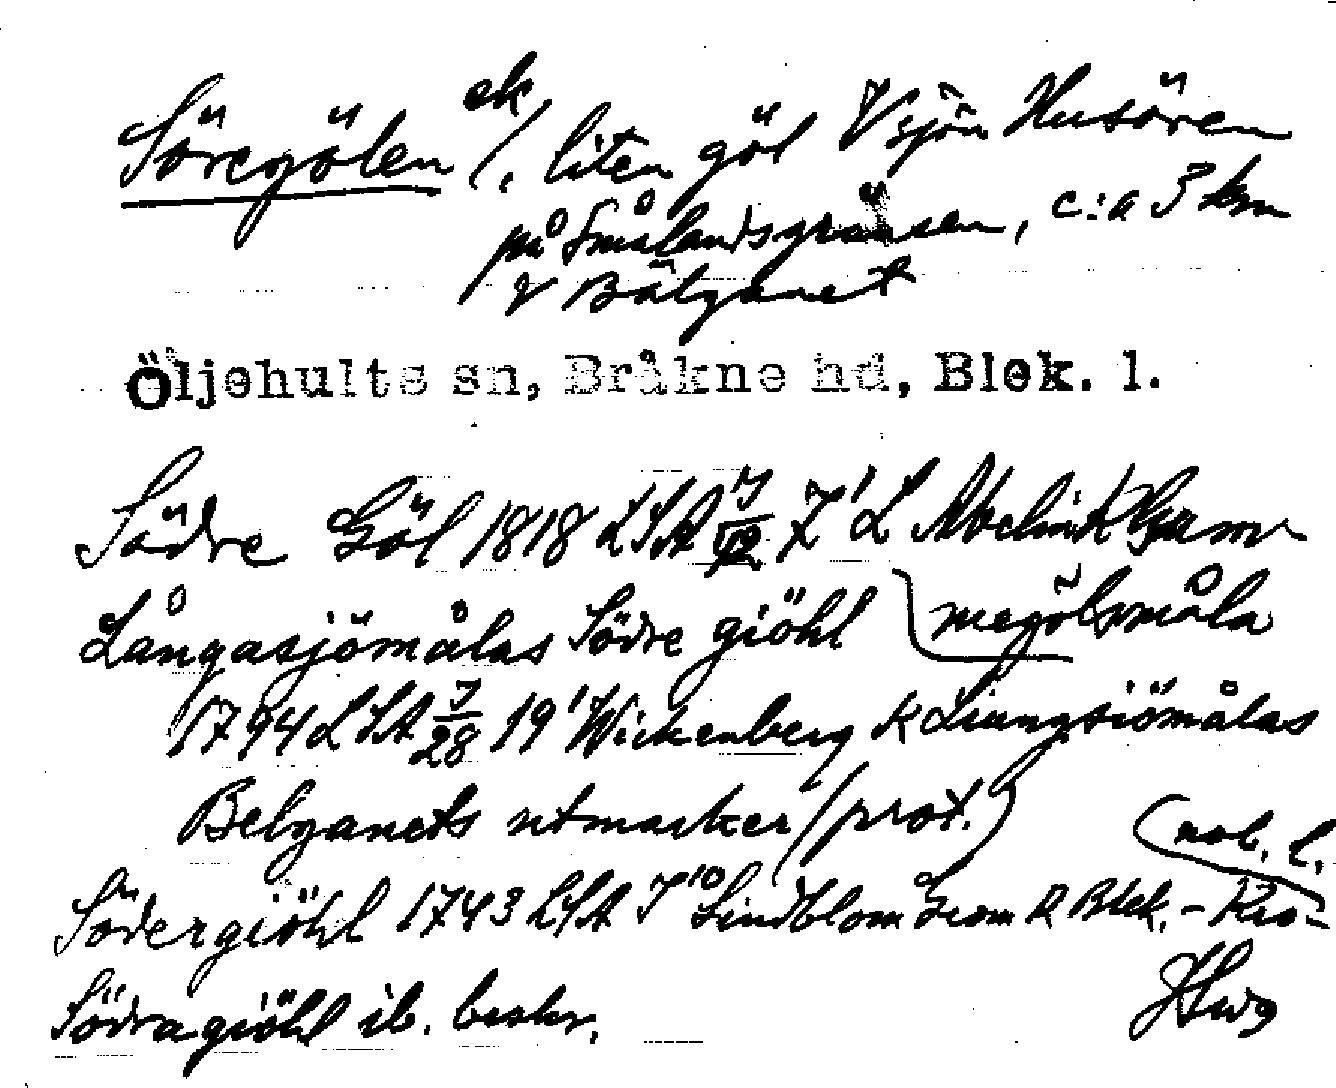 Söregölen ek /, liten göl V sjön Husören
på Smålandsgränsen, c:a 3 km
V Bälganet
Öljehults sn, Bråkne hd, Blek. l.
Södre Göl 1818 LSA 7/12 Z' L Abelin K Gamm
Långasjömålas Södre giöhl megölsmåla
1794 LSA 7/28 19' Wickenberg K Liungsiömålas
Belganets utmarker (prot.)
Södergiöhl 1743 LSA Lindblom Geom R Blek. -
Södragiöhl ib. beskr.